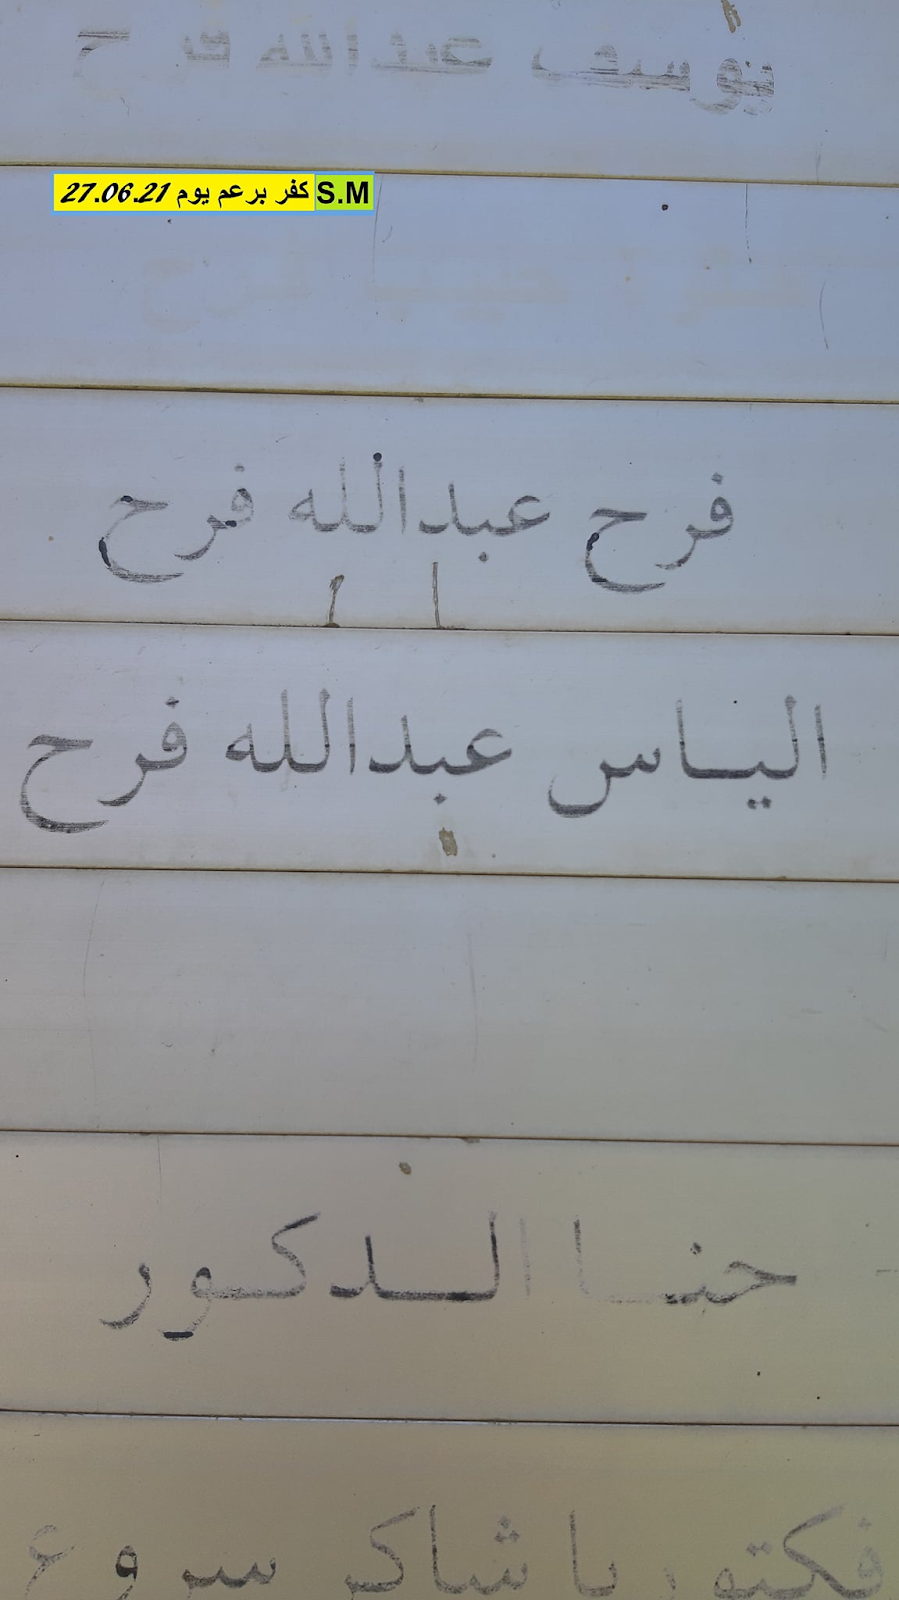 يوسف عبدالله فرح
S.M كفر برعم يوم 27.06.21
فرح
فرح عبدالله فرح
الياس عبدالله فرح
حنا الدكور
فكتوريا شاكر سروع